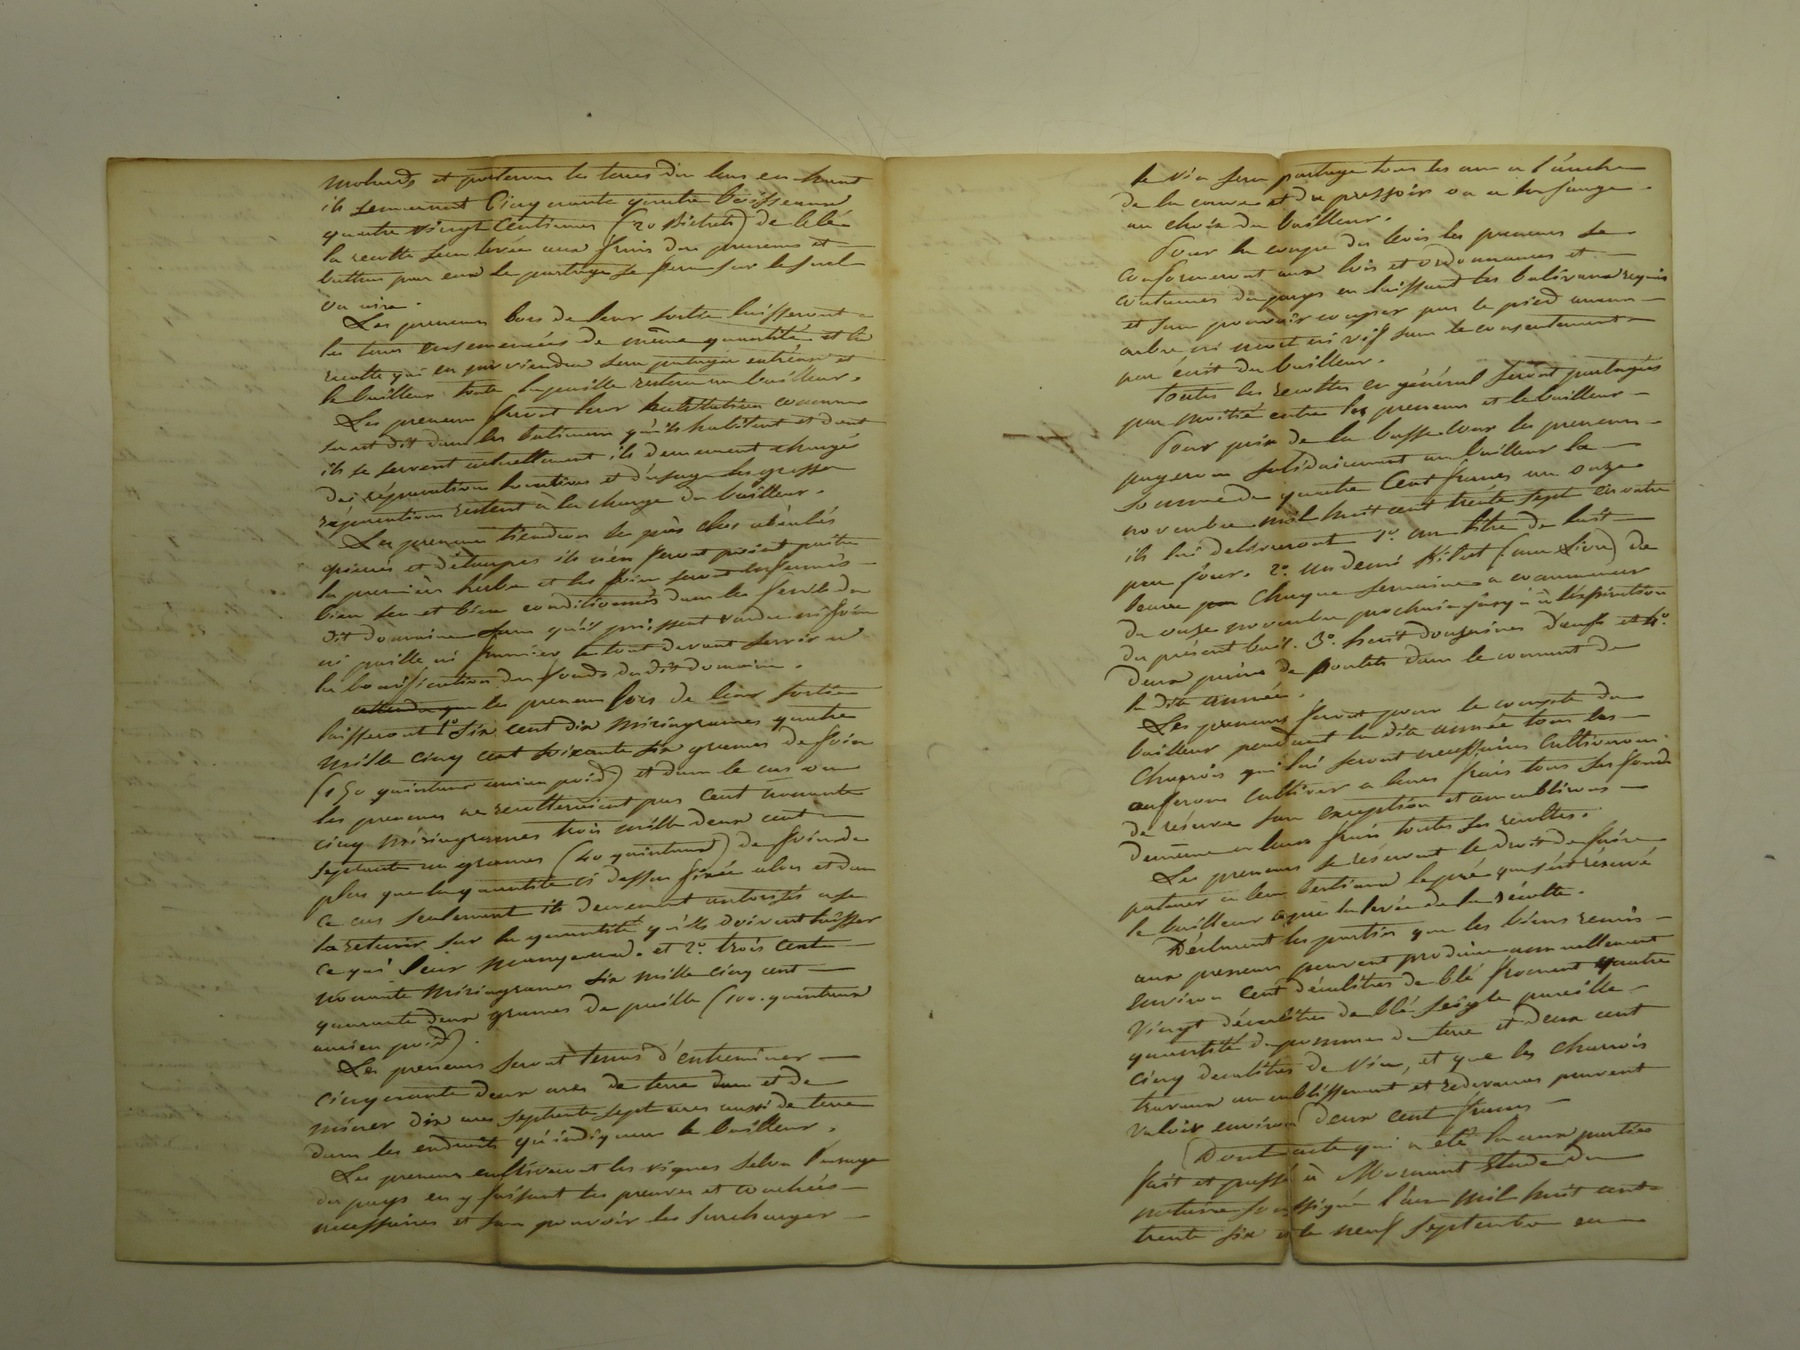 et porteron les terres du bas en haut
ils semeront Cinquante quatre boisseaux
quatre vingt Centiemes (20 Bichets) de blé
la recolte sera levée aux frais des preneurs et
battue par eux le partage se fera sur le suel
ou aire.
Les preneurs lors de leur sortie laisseront
les terres ensemencées de même quantité et la
recolte qui en proviendra sera partagée entre eux et
le bailleur toute la paille restera au bailleur.
Les preneurs feront leur habitation comme
sus est dit dans les batimens qu'ils habitent et dont
ils se servent actuellement ils demeurent chargés
des réparations locatives et d'usage les grosses
réparations restent à la charge du bailleur.
Les preneurs tiendron les près clos
et détaupés ils n'en feront point paitre
la première herbe et les foin seront enfermés
bien sec et bien conditionnés dans les fenils du
dit domaine sans qu'il puissent vendre ni foin
ni paille ni fumier le tout devant servir a
la bonification des fonds du dit domaine.
les preneurs lors de leur sortie
laisseront 1° Six cent dix miriagrames quatre
mille cinq cent soixante six grames de foin
(150 quintaux ancien poid) et dans le cas ou
les preneurs ne recolteroient pas cent nonante
cinq miriagrames trois mille deux cent
septante un grames (40 quintaux) de foin de
plus que la quantité ci dessus fixée alors et dans
ce cas seulement ils demeurent autorisés a se
la retenir sur la quantité qu'ils doivent laisser
ce qui leur manquera. et 2° trois cent
nonante miriagrames six mille cinq cent
quarante deux grames de paille (100 quintaux
ancien poid).
Les preneurs seront tenus d'entreminer
cinquante deux ares de terre dure et de
miner dix ares septante sept ares aussi de terre
dans les endroits qu'indiquera le bailleur.
Les preneurs cultiveront les vignes selon l'usage
du pays en y faisant les preuves et couchées
necessaires et sans pouvoir les surcharger
le vin sera partagé tous les ans a l'anche
de la cuve et du pressoir ou a la
au choix du bailleur.
Pour la coupe des bois les preneurs se
conformeront aux lois et ordonnances et
coutumes du pays en laissant les baliveaux requis
et sans pouvoir couper par le pied aucun
arbre ni mort ni vif sans le consentement
par écrit du bailleur.
Toutes les recoltes en général seront partagées
par moitié entre les preneurs et le bailleur
Pour prix de la basse cour les preneurs
payeron solidairement au bailleur la
somme de quatre Cent francs au onze
novembre mil huit cent trente sept en outre
ils lui delivreront 1° un litre de lait
par jour. 2° un demi Kilot (une Livre) de
beurre par Chaque semaine a commencer
du onze novembre prochain jusqu'à l'expiration
du présent bail. 3° huit douzaines d'œufs et 4°
deux paires de poulets dans le courant de
la dite année.
Les preneurs feront pour le compte du
bailleur pendant la dite année tous les
Charrois qui lui seront necessaires Cultiveron
ou feron cultiver a leurs frais tous ses fonds
de réserve sans exception et
de même a leurs frais toutes ses recoltes.
Les preneurs se réservent le droit de faire
paturer a leurs bestiaux le pré que s'est reservé
le bailleur après la levée de la récolte.
Déclarent les parties que les biens remis
aux preneurs peuvent produire annuellement
environ cent décalitres de blé froment quatre
vingt décalitres de blé seigle pareille
quantité de pommes de terre et deux cent
cinq decalitres de vin, et que les charrois
travaux et redevances peuvent
valoir environ deux cent francs
Dont acte qui a été lu aux parties
fait et passé à Mornant Etude du
notaire soussigné l'an mil huit cent
trente six et le neuf septembre en